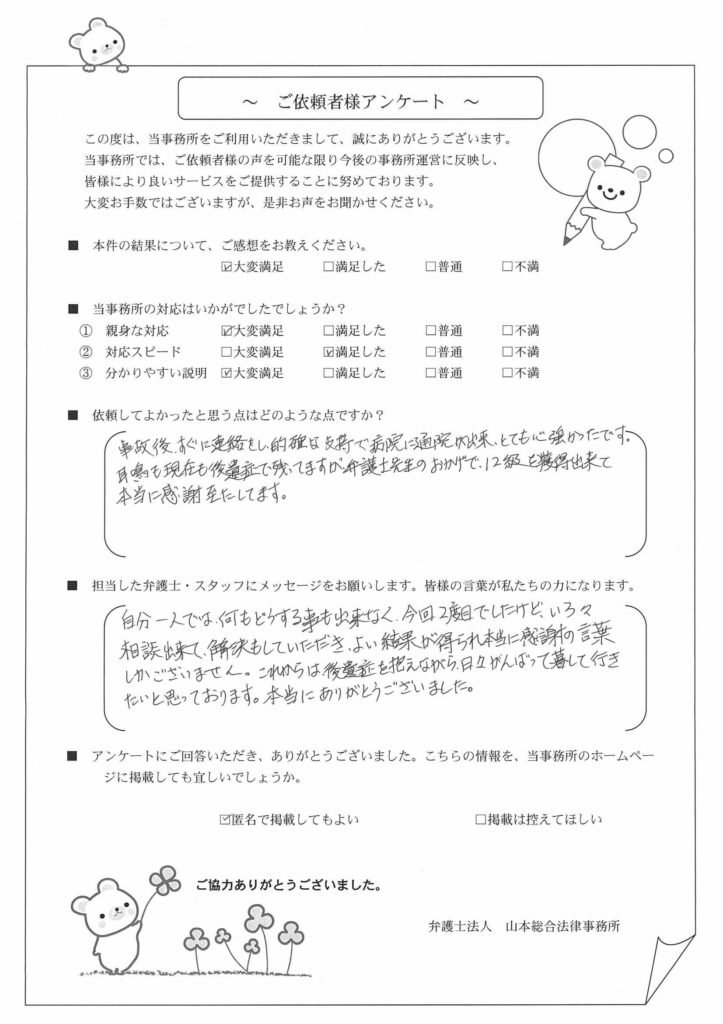 ～　ご依頼者様アンケート　～
この度は、当事務所をご利用いただきまして、誠にありがとうございます。
当事務所では、ご依頼者様の声を可能な限り今後の事務所運営に反映し、
皆様により良いサービスをご提供することに努めております。
大変お手数ではございますが、是非お声をお聞かせください。
■　本件の結果について、ご感想をお教えください。
☑大変満足　□満足した　□普通　□不満
■　当事務所の対応はいかがでしたでしょうか？
①　親身な対応　☑大変満足　□満足した　□普通　□不満
②　対応スピード　□大変満足　☑満足した　□普通　□不満
③　分かりやすい説明　☑大変満足　□満足した　□普通　□不満
■　依頼してよかったと思う点はどのような点ですか？
事故後、すぐに連絡をし、的確な支持で病院に通院が出来、とても心強かったです。
耳鳴も現在も後遺症で残ってますが、弁護士先生のおかげで、12級を獲得出来て
本当に感謝至たしてます。
■　担当した弁護士・スタッフにメッセージをお願いします。皆様の言葉が私たちの力になります。
自分一人では、何もどうする事も出来なく、今回2度目でしたけど、いろ々
相談出来て、解決もしていただき、よい結果が得られ本当に感謝の言葉
しかございません。これからは後遺症を抱えながら、日々がんばって暮して行き
たいと思っております。本当にありがとうございました。
■　アンケートにご回答いただき、ありがとうございました。こちらの情報を、当事務所のホームペー
ジに掲載しても宜しいでしょうか。
☑匿名で掲載してもよい　□掲載は控えてほしい
ご協力ありがとうございました。
弁護士法人　山本総合法律事務所